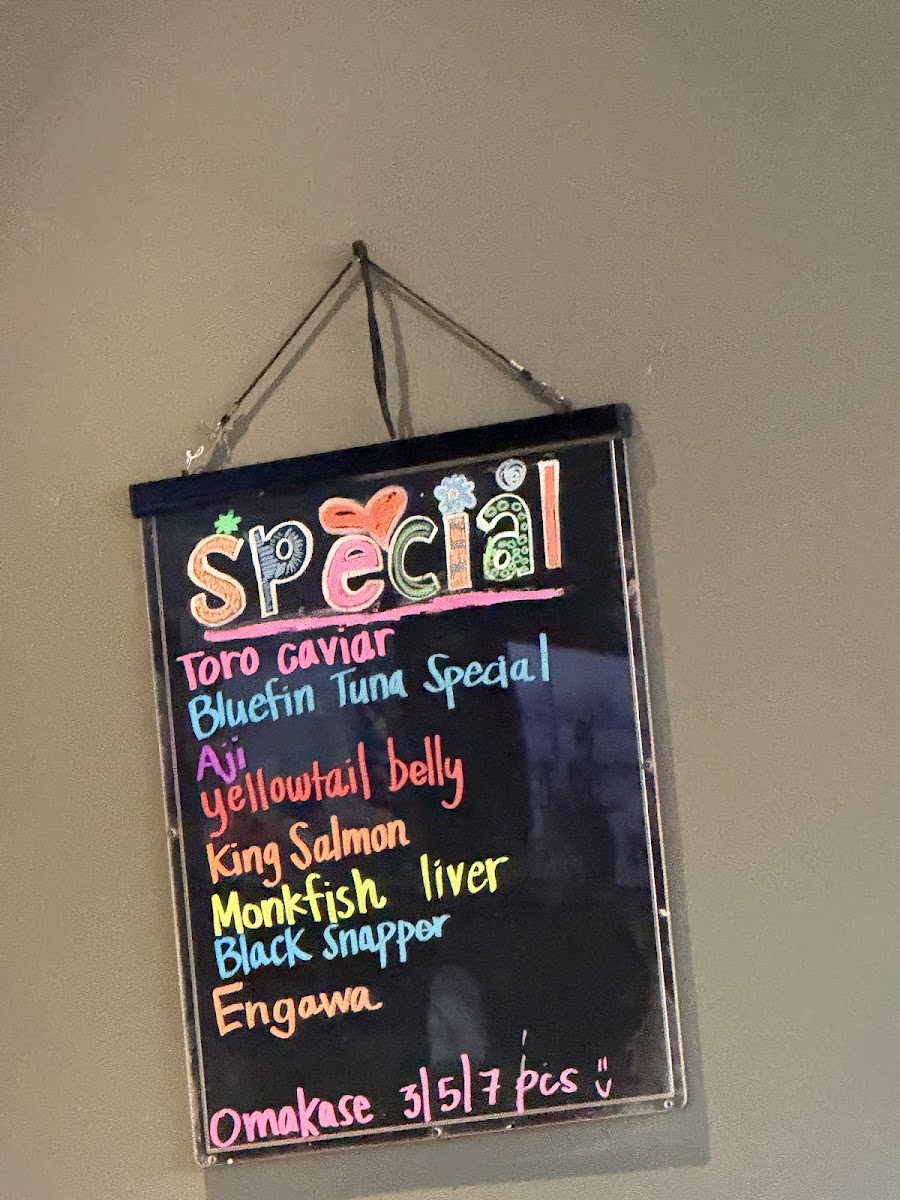 special
Toro caviar
Bluefin Tuna Special
Aji
yellowtail belly
King Salmon
Monkfish liver
Black Snapper
Engawa
Omakase 3/5/7 pcs